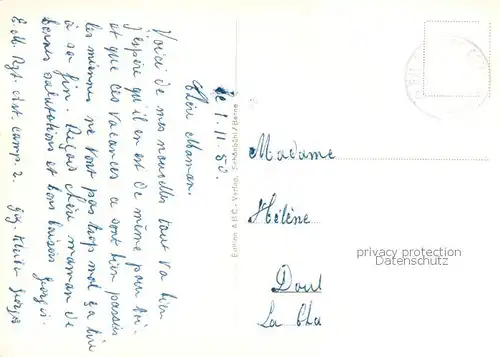 le 1.11.50.
Chère Maman.
Voici de mes nouvelles tout va bien
j'espère qu'il en est de même pour toi
et que ces vacances ce sont bien passées
les miennes ne vont pas trop mal sa tire
à sa fin. Reçois chère maman de
bonnes salutations et bons baisers Georges.
E. M. Rgt. art. camp. 2.
Edition A B C - Verlag, Schönbühl / Berne
Madame
Hélène
privacy protection
Datenschutz
La Cha